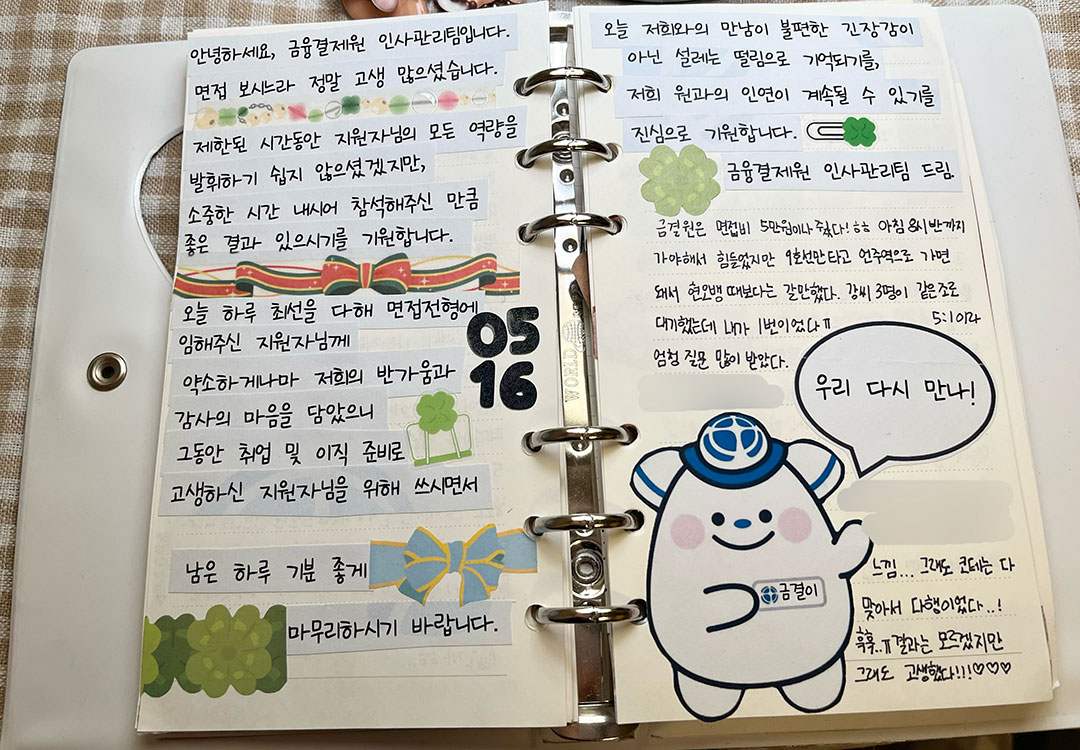 안녕하세요, 금융결제원 인사관리팀입니다.
면접 보시느라 정말 고생 많으셨습니다.
제한된 시간동안 지원자님의 모든 역량을
발휘하기 쉽지 않으셨겠지만,
소중한 시간 내시어 참석해주신 만큼
좋은 결과 있으시기를 기원합니다.
오늘 하루 최선을 다해 면접전형에
임해주신 지원자님께
약소하게나마 저희의 반가움과
감사의 마음을 담았으니
그동안 취업 및 이직 준비로
고생하신 지원자님을 위해 쓰시면서
남은 하루 기분 좋게
마무리하시기 바랍니다.
05
16
WORLD
오늘 저희와의 만남이 불편한 긴장감이
아닌 설레는 떨림으로 기억되기를,
저희 원과의 인연이 계속될 수 있기를
진심으로 기원합니다.
금융결제원 인사관리팀 드림
금결원은 면접비 5만원이나 줬다! ㅎㅎ 아침 8시 반까지
가야해서 힘들었지만 9호선만 타고 언주역으로 가면
돼서 현오뱅 때보다는 갈만했다. 강씨 3명이 같은조로
대기했는데 내가 1번이었다ㅠ 5:1이라
엄청 질문 많이 받았다.
우리 다시 만나!
금결이
느낌... 그래도 코테는 다
맞아서 다행이었다..!
흑흑..ㅠ 결과는 모르겠지만
그래도 고생했다!!!♡♡♡